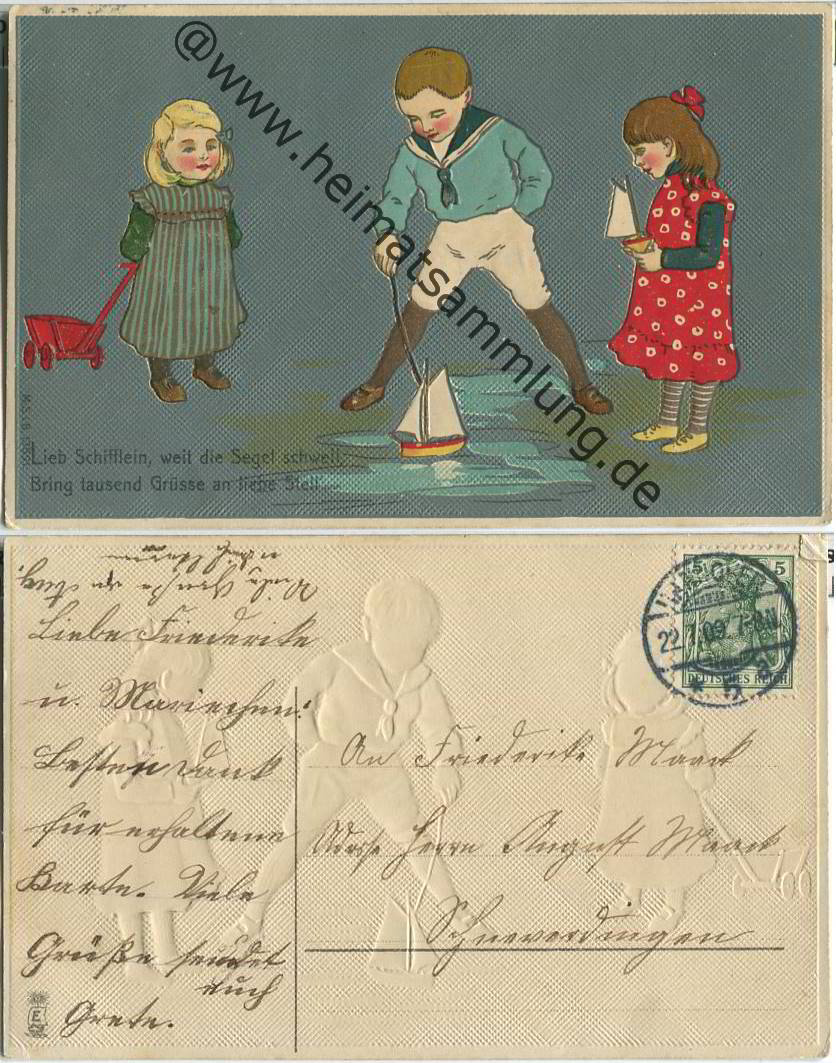 @www.heimatsammlung.de
Lieb Schifflein, weit die Segel schwell,
Bring tausend Grüsse an liebe Stell
M.S.i.B.
Liebe Friederike
u. Mariechen!
Besten Dank
für erhaltene
Karte. Viele
Grüße sendet
euch
Grete.
An Friederike Maack
Adresse Herrn August Maack
Schneverdingen
5 5
DEUTSCHES REICH
22. 09 7-8N
E